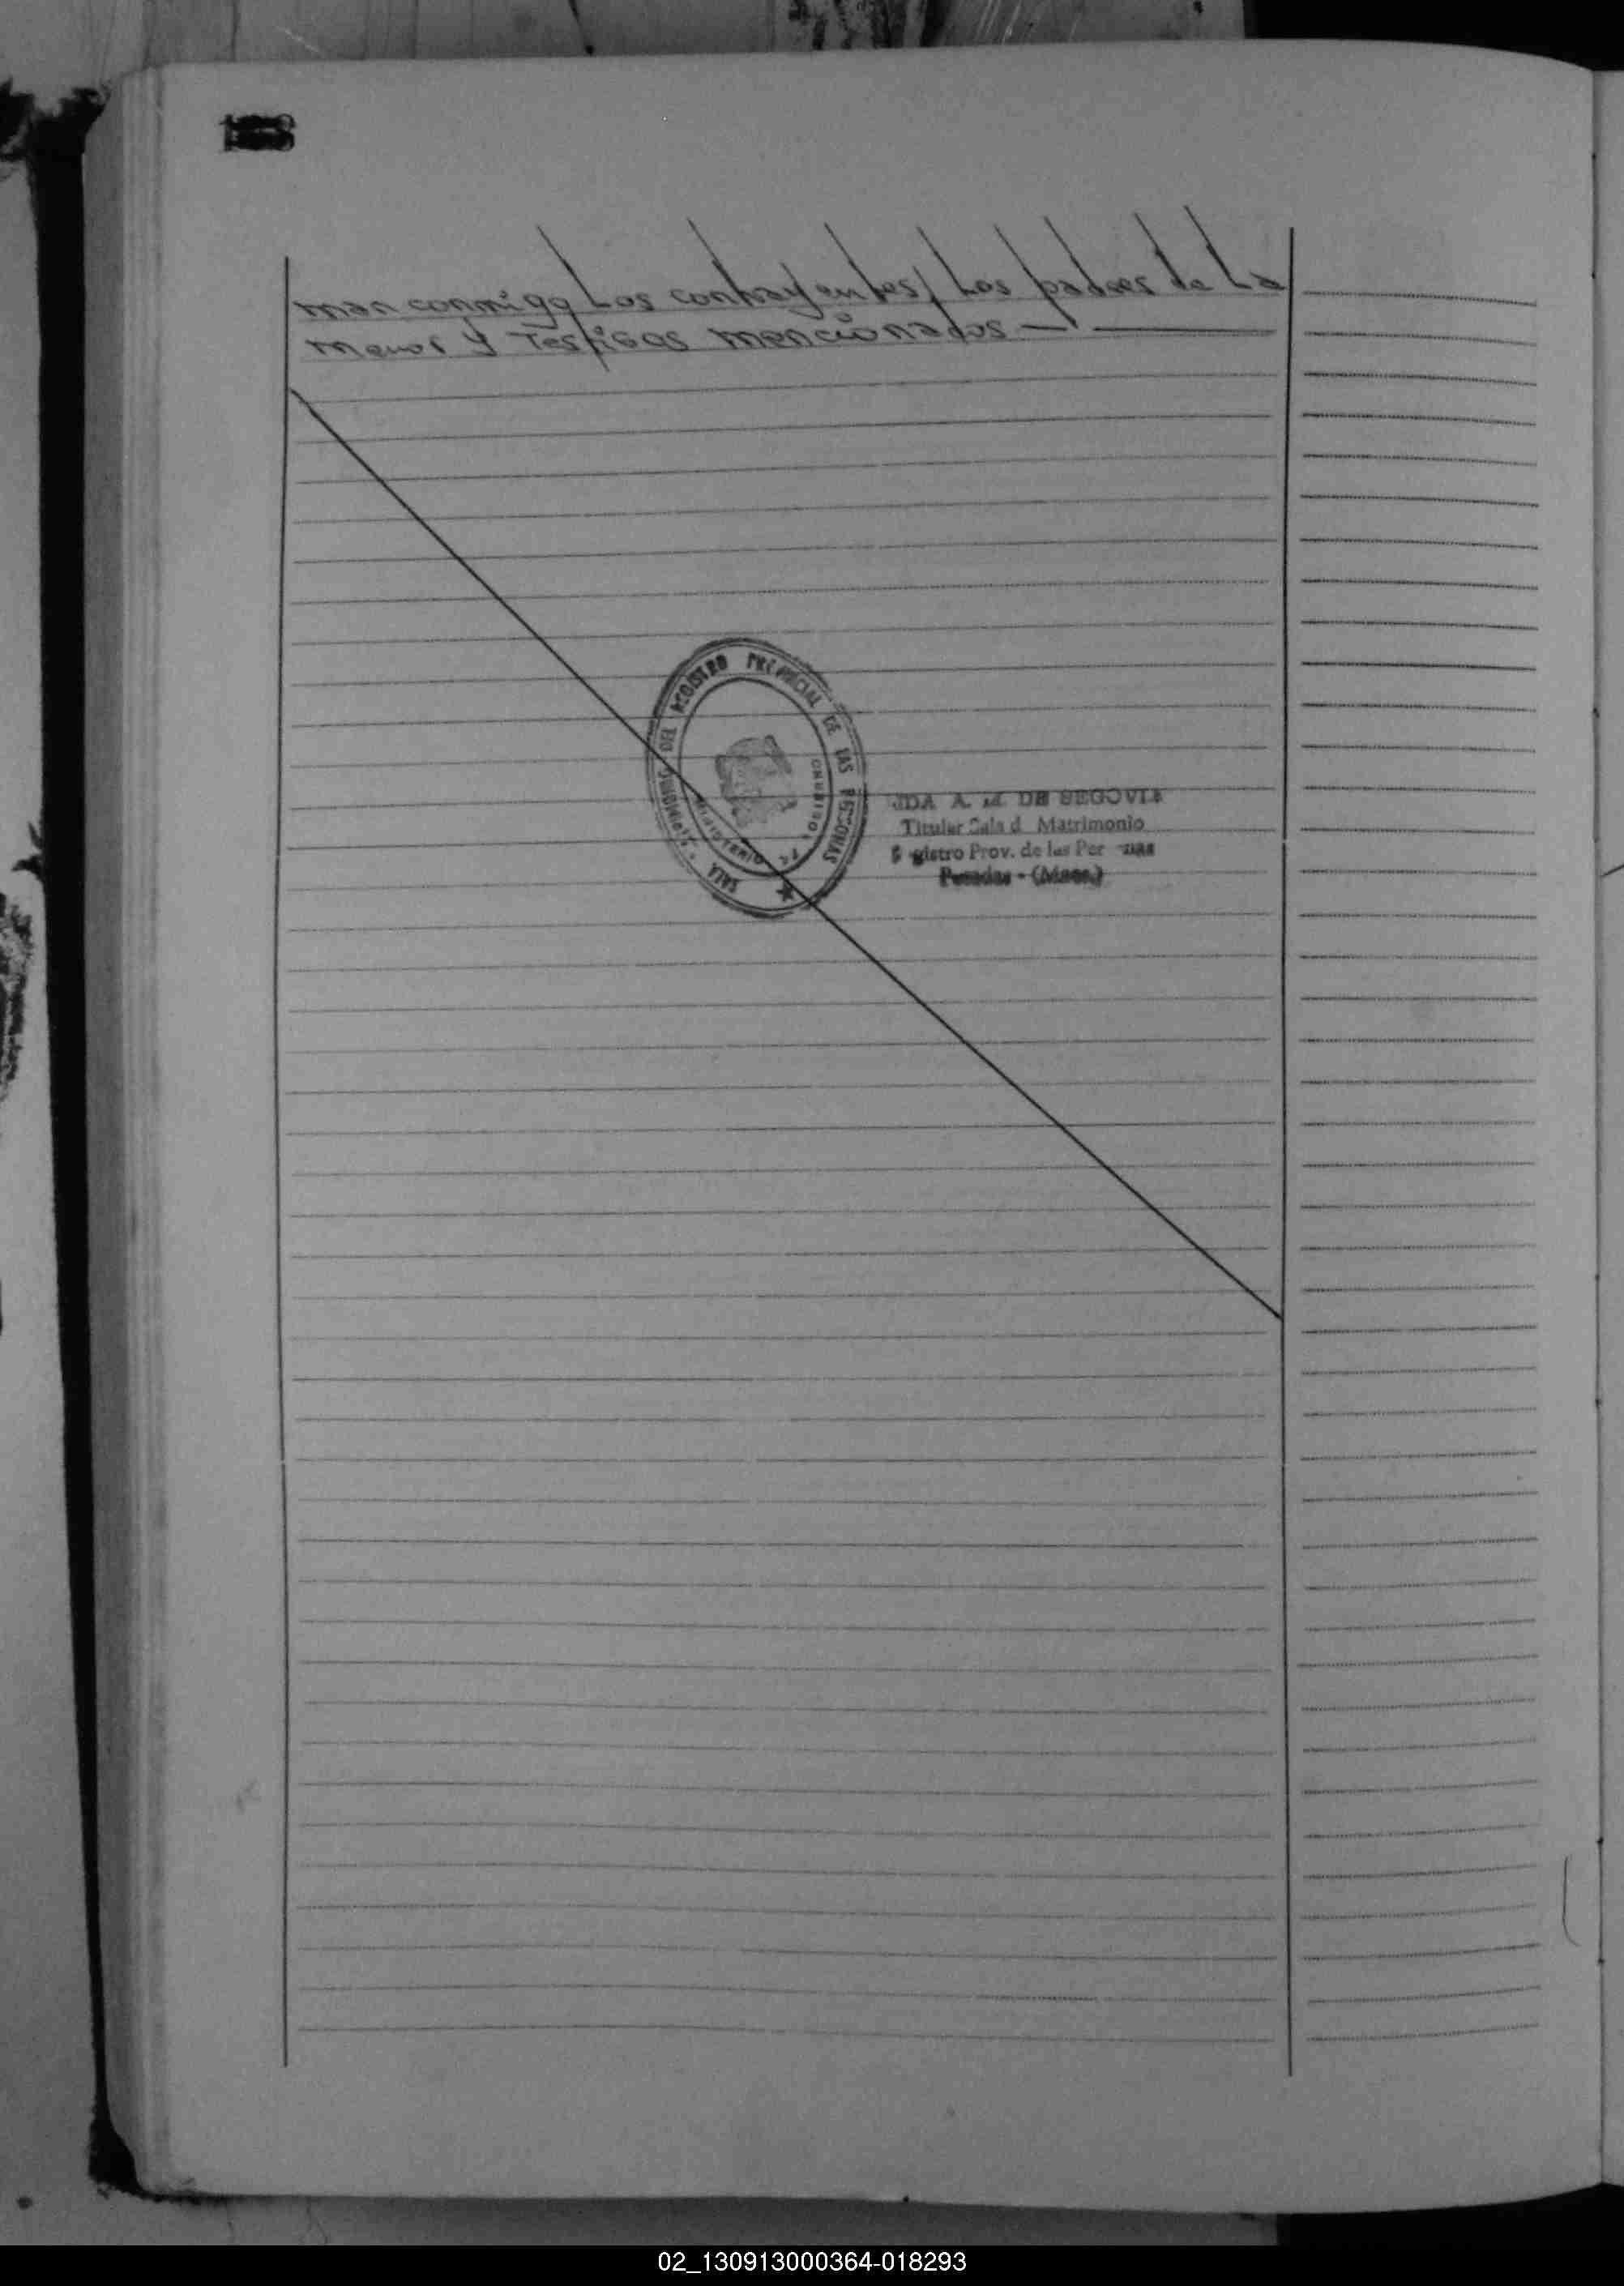 man conmigo Los contrayentes, Los padres de La
menor y Testigos mencionados —
REGISTRO PROVINCIAL DE LAS PERSONAS
SALA
MINISTERIO DE
GOBIERNO
IDA A. M. DE SEGOVIA
Titular Sala d Matrimonio
gistro Prov. de las Per nas
Posadas - (Mnes.)
02_130913000364-018293